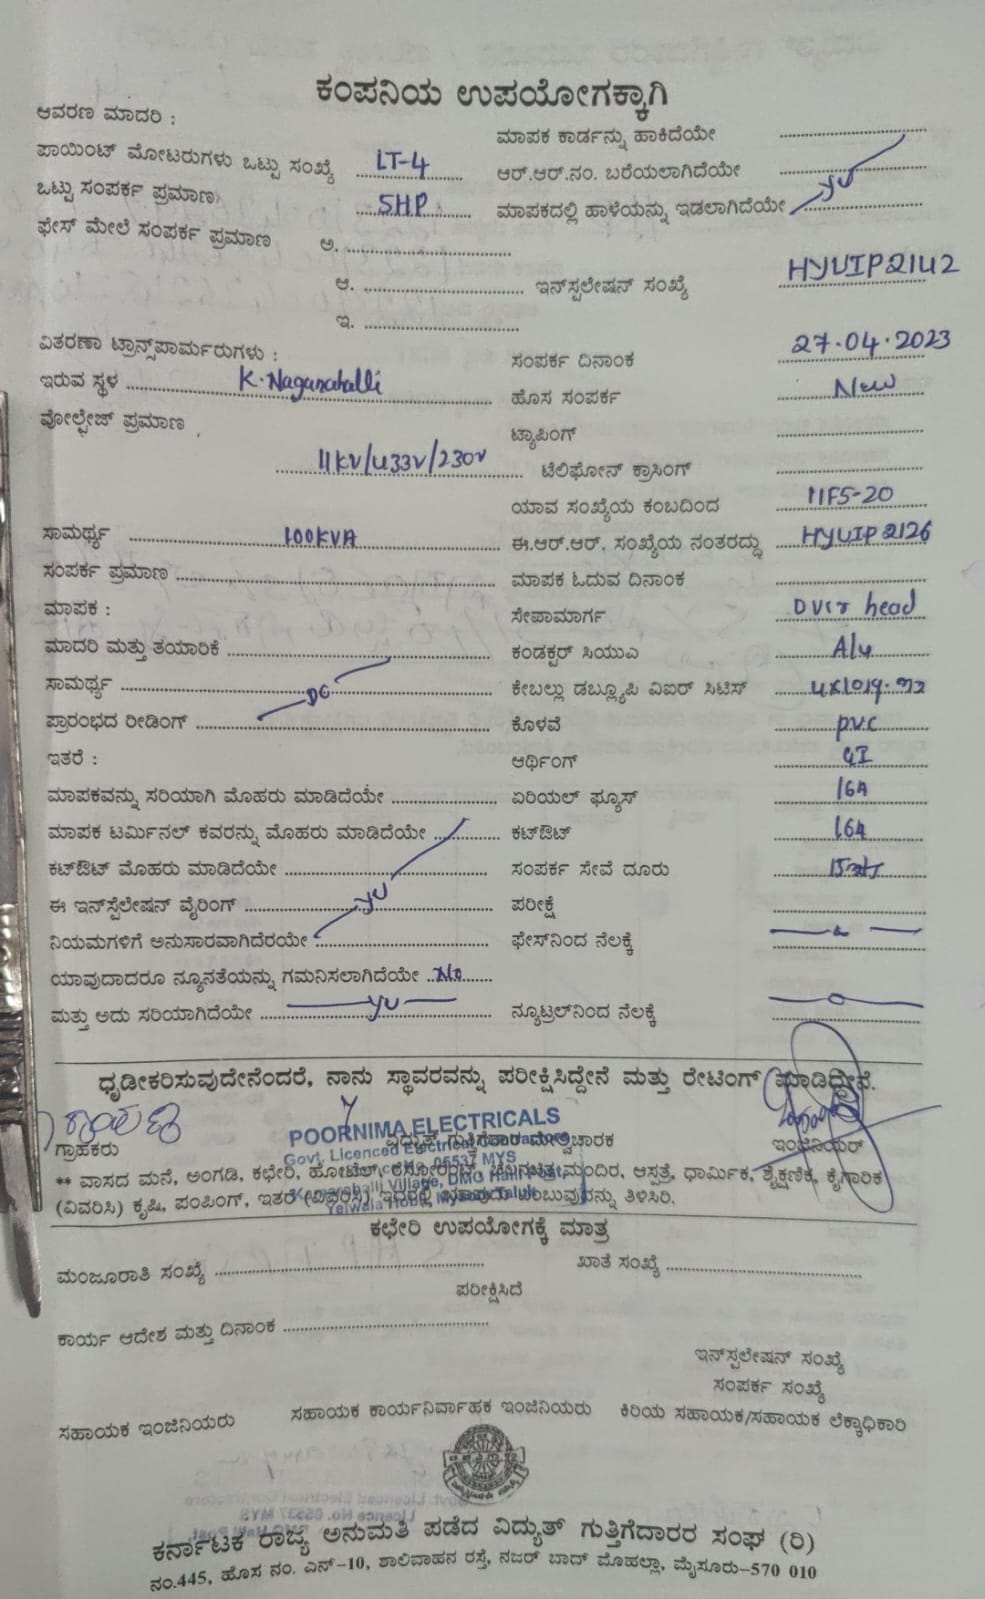 ಕಂಪನಿಯ ಉಪಯೋಗಕ್ಕಾಗಿ
ಆವರಣ ಮಾದರಿ :
ಮಾಪಕ ಕಾರ್ಡನ್ನು ಹಾಕಿದೆಯೇ
ಪಾಯಿಂಟ್ ಮೋಟರುಗಳು ಒಟ್ಟು ಸಂಖ್ಯೆ LT-4 ಆರ್.ಆರ್.ನಂ. ಬರೆಯಲಾಗಿದೆಯೇ
ಒಟ್ಟು ಸಂಪರ್ಕ ಪ್ರಮಾಣ 5HP ಮಾಪಕದಲ್ಲಿ ಹಾಳೆಯನ್ನು ಇಡಲಾಗಿದೆಯೇ
ಫೇಸ್ ಮೇಲೆ ಸಂಪರ್ಕ ಪ್ರಮಾಣ ಅ.
ಆ. ಇನ್‌ಸ್ಪಲೇಷನ್ ಸಂಖ್ಯೆ HYUIP2142
ಇ.
ವಿತರಣಾ ಟ್ರಾನ್ಸ್‌ಪಾರ್ಮರುಗಳು : ಸಂಪರ್ಕ ದಿನಾಂಕ 27.04.2023
ಇರುವ ಸ್ಥಳ K.Naganahalli ಹೊಸ ಸಂಪರ್ಕ New
ವೋಲ್ಟೇಜ್ ಪ್ರಮಾಣ ಟ್ಯಾಪಿಂಗ್
11KV/433V/230V ಟೆಲಿಫೋನ್ ಕ್ರಾಸಿಂಗ್
ಯಾವ ಸಂಖ್ಯೆಯ ಕಂಬದಿಂದ 11F5-20
ಸಾಮರ್ಥ್ಯ 100KVA ಈ.ಆರ್.ಆರ್. ಸಂಖ್ಯೆಯ ನಂತರದ್ದು HYUIP2126
ಸಂಪರ್ಕ ಪ್ರಮಾಣ ಮಾಪಕ ಓದುವ ದಿನಾಂಕ
ಮಾಪಕ : ಸೇವಾಮಾರ್ಗ Over head
ಮಾದರಿ ಮತ್ತು ತಯಾರಿಕೆ ಕಂಡಕ್ಟರ್ ಸಿಯುಎ Alu
ಸಾಮರ್ಥ್ಯ ಕೇಬಲ್ಲು ಡಬ್ಲ್ಯೂಪಿ ವಿಐರ್ ಸಿಟಿಸ್
ಪ್ರಾರಂಭದ ರೀಡಿಂಗ್ ಕೊಳವೆ p.v.c
ಇತರೆ : ಆರ್ಥಿಂಗ್ GI
ಮಾಪಕವನ್ನು ಸರಿಯಾಗಿ ಮೊಹರು ಮಾಡಿದೆಯೇ ಏರಿಯಲ್ ಫ್ಯೂಸ್ 16A
ಮಾಪಕ ಟರ್ಮಿನಲ್ ಕವರನ್ನು ಮೊಹರು ಮಾಡಿದೆಯೇ ಕಟ್‌ಔಟ್ 16A
ಕಟ್‌ಔಟ್ ಮೊಹರು ಮಾಡಿದೆಯೇ ಸಂಪರ್ಕ ಸೇವೆ ದೂರು
ಈ ಇನ್‌ಸ್ಪೆಲೇಷನ್ ವೈರಿಂಗ್ ಪರೀಕ್ಷೆ
ನಿಯಮಗಳಿಗೆ ಅನುಸಾರವಾಗಿದೆರಯೇ ಫೇಸ್‌ನಿಂದ ನೆಲಕ್ಕೆ
ಯಾವುದಾದರೂ ನ್ಯೂನತೆಯನ್ನು ಗಮನಿಸಲಾಗಿದೆಯೇ No
ಮತ್ತು ಅದು ಸರಿಯಾಗಿದೆಯೇ ನ್ಯೂಟ್ರಲ್‌ನಿಂದ ನೆಲಕ್ಕೆ
ಧೃಡೀಕರಿಸುವುದೇನೆಂದರೆ, ನಾನು ಸ್ಥಾವರವನ್ನು ಪರೀಕ್ಷಿಸಿದ್ದೇನೆ ಮತ್ತು ರೇಟಿಂಗ್ ಮಾಡಿದ್ದೇನೆ.
POORNIMA ELECTRICALS
ಗ್ರಾಹಕರು ವಿದ್ಯುತ್ ಗುತ್ತಿಗೆದಾರ ಮೇಲ್ವಿಚಾರಕ ಇಂಜಿನಿಯರ್
Govt. Licenced Electrical
05537 MYS
** ವಾಸದ ಮನೆ, ಅಂಗಡಿ, ಕಛೇರಿ, ಹೋಟೆಲ್, ರೆಸ್ಟೋರೆಂಟ್, ಚಲನಚಿತ್ರ ಮಂದಿರ, ಆಸ್ಪತ್ರೆ, ಧಾರ್ಮಿಕ, ಶೈಕ್ಷಣಿಕ, ಕೈಗಾರಿಕ
Village, DMG Halli Post,
(ವಿವರಿಸಿ) ಕೃಷಿ, ಪಂಪಿಂಗ್, ಇತರೆ (ವಿವರಿಸಿ) ಇದರಲ್ಲಿ ಯಾವುದು ಎಂಬುವುದನ್ನು ತಿಳಿಸಿರಿ.
Yelwala Hobli, Mysore Taluk
ಕಛೇರಿ ಉಪಯೋಗಕ್ಕೆ ಮಾತ್ರ
ಮಂಜೂರಾತಿ ಸಂಖ್ಯೆ ಖಾತೆ ಸಂಖ್ಯೆ
ಪರೀಕ್ಷಿಸಿದೆ
ಕಾರ್ಯ ಆದೇಶ ಮತ್ತು ದಿನಾಂಕ
ಇನ್‌ಸ್ಪಲೇಷನ್ ಸಂಖ್ಯೆ
ಸಂಪರ್ಕ ಸಂಖ್ಯೆ
ಸಹಾಯಕ ಇಂಜಿನಿಯರು ಸಹಾಯಕ ಕಾರ್ಯನಿರ್ವಾಹಕ ಇಂಜಿನಿಯರು ಕಿರಿಯ ಸಹಾಯಕ/ಸಹಾಯಕ ಲೆಕ್ಕಾಧಿಕಾರಿ
ಕರ್ನಾಟಕ ರಾಜ್ಯ ಅನುಮತಿ ಪಡೆದ ವಿದ್ಯುತ್ ಗುತ್ತಿಗೆದಾರರ ಸಂಘ (ರಿ)
ನಂ.445, ಹೊಸ ನಂ. ಎನ್-10, ಶಾಲಿವಾಹನ ರಸ್ತೆ, ನಜರ್ ಬಾದ್ ಮೊಹಲ್ಲಾ, ಮೈಸೂರು-570 010